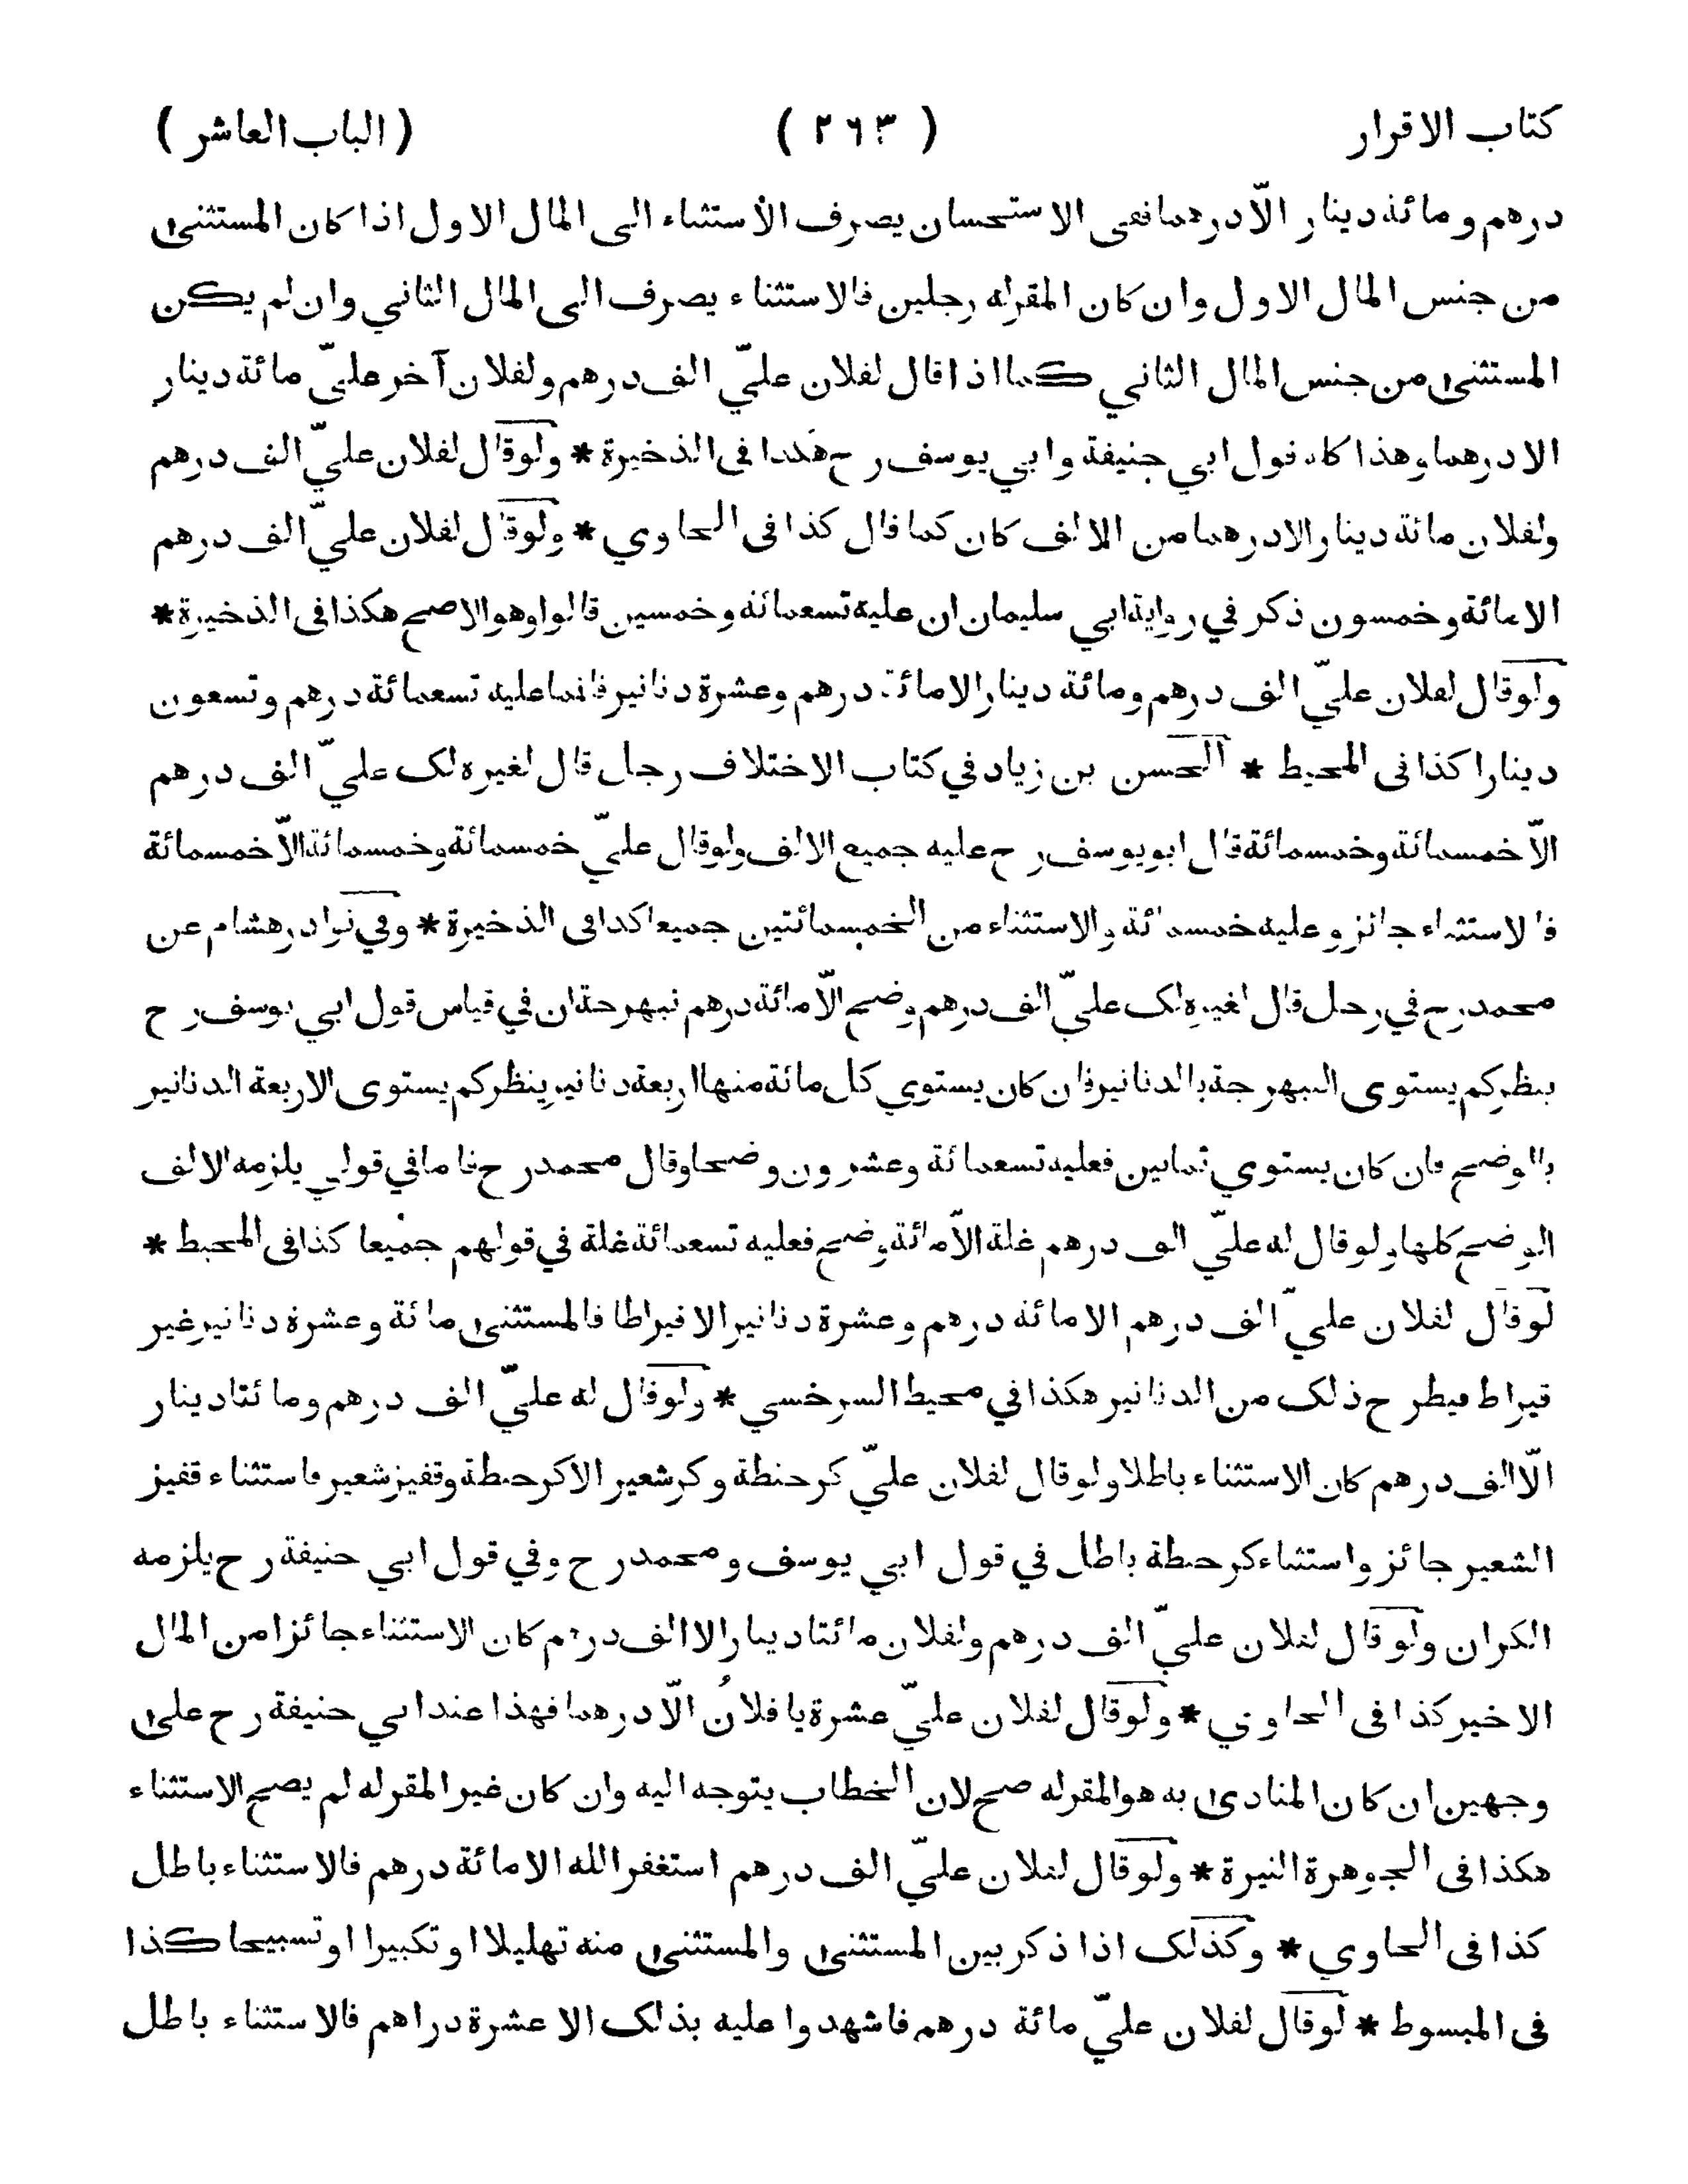 كتاب الاقرار ( ٢٦٣ ) ( الباب العاشر )
درهم ومائة دينار الّا درهما ففى الاستحسان يصرف الأستثناء الى المال الاول اذا كان المستثنى
من جنس المال الاول وان كان المقرله رجلين فالاستثناء يصرف الى المال الثاني وان لم يكن
المستثنى من جنس المال الثاني كما اذا قال لفلان عليّ الف درهم ولفلان آخر عليّ مائة دينار
الا درهما وهذا كله قول ابي حنيفة وابي يوسف رح هكذا فى الذخيرة * ولوقال لفلان عليّ الف درهم
ولفلان مائة دينار الا درهما من الالف كان كما قال كذا فى الحاوي * ولوقال لفلان عليّ الف درهم
الا مائة وخمسون ذكر في رواية ابي سليمان ان عليه تسعمائة وخمسين قالوا وهو الاصح هكذا فى الذخيرة *
ولوقال لفلان عليّ الف درهم ومائة دينار الا مائة درهم وعشرة دنانير فانما عليه تسعمائة درهم وتسعون
دينارا كذا فى المحيط * الحسن بن زياد في كتاب الاختلاف رجل قال لغيره لك عليّ الف درهم
الّا خمسمائة وخمسمائة قال ابويوسف رح عليه جميع الالف ولوقال عليّ خمسمائة وخمسمائة الّا خمسمائة
فالاستثناء جائز وعليه خمسمائة والاستثناء من الخمسمائتين جميعا كذا فى الذخيرة * وفي نوادر هشام عن
محمد رح في رجل قال لغيره لك عليّ الف درهم وضح الّا مائة درهم نبهرجة ان في قياس قول ابي يوسف رح
ينظر كم يستوى النبهرجة بالدنانير فان كان يستوي كل مائة منها اربعة دنانير ينظر كم يستوى الاربعة الدنانير
بالوضح فان كان يستوي ثمانين فعليه تسعمائة وعشرون وضحا وقال محمد رح فاما في قولي يلزمه الالف
الوضح كلها ولو قال له عليّ الف درهم غلة الّا مائة وضح فعليه تسعمائة غلة في قولهم جميعا كذا فى المحيط *
لوقال لفلان علي الف درهم الا مائة درهم وعشرة دنانير الا قيراطا فالمستثنى مائة وعشرة دنانير غير
قيراط فيطرح ذلك من الدنانير هكذا في محيط السرخسي * ولوقال له عليّ الف درهم ومائتا دينار
الّا الف درهم كان الاستثناء باطلا ولوقال لفلان عليّ كر حنطة وكر شعير الا كر حنطة وقفيز شعير فاستثناء قفيز
الشعير جائز واستثناء كر حنطة باطل في قول ابي يوسف ومحمد رح وفي قول ابي حنيفة رح يلزمه
الكران ولو قال لفلان عليّ الف درهم ولفلان مائتا دينار الا الف درهم كان الاستثناء جائزا من المال
الاخير كذا فى الحاوي * ولوقال لفلان عليّ عشرة يا فلانُ الّا درهما فهذا عند ابي حنيفة رح على
وجهين ان كان المنادى به هو المقرله صح لان الخطاب يتوجه اليه وان كان غير المقرله لم يصح الاستثناء
هكذا فى الجوهرة النيرة * ولوقال لفلان عليّ الف درهم استغفرالله الا مائة درهم فالاستثناء باطل
كذا فى الحاوي * وكذلك اذا ذكر بين المستثنى والمستثنى منه تهليلا او تكبيرا او تسبيحا كذا
فى المبسوط * لوقال لفلان عليّ مائة درهم فاشهدوا عليه بذلك الا عشرة دراهم فالاستثناء باطل